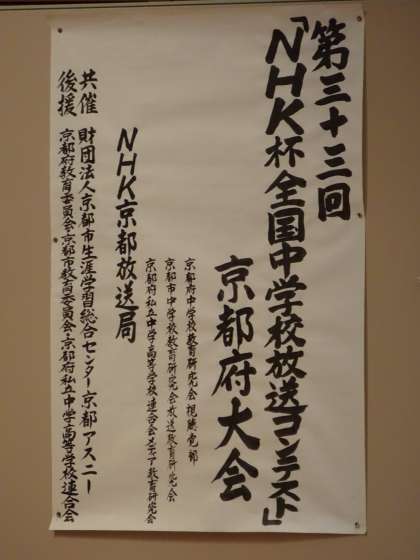 第三十三回
「NHK杯全国中学校放送コンテスト」
京都府大会
京都府中学校教育研究会視聴覚部
京都市中学校教育研究会放送教育研究会
京都府私立中学高等学校連合会メディア教育研究会
NHK京都放送局
共催 財団法人京都市生涯学習総合センター京都アスニー
後援 京都府教育委員会・京都市教育委員会・京都府私立中学高等学校連合会